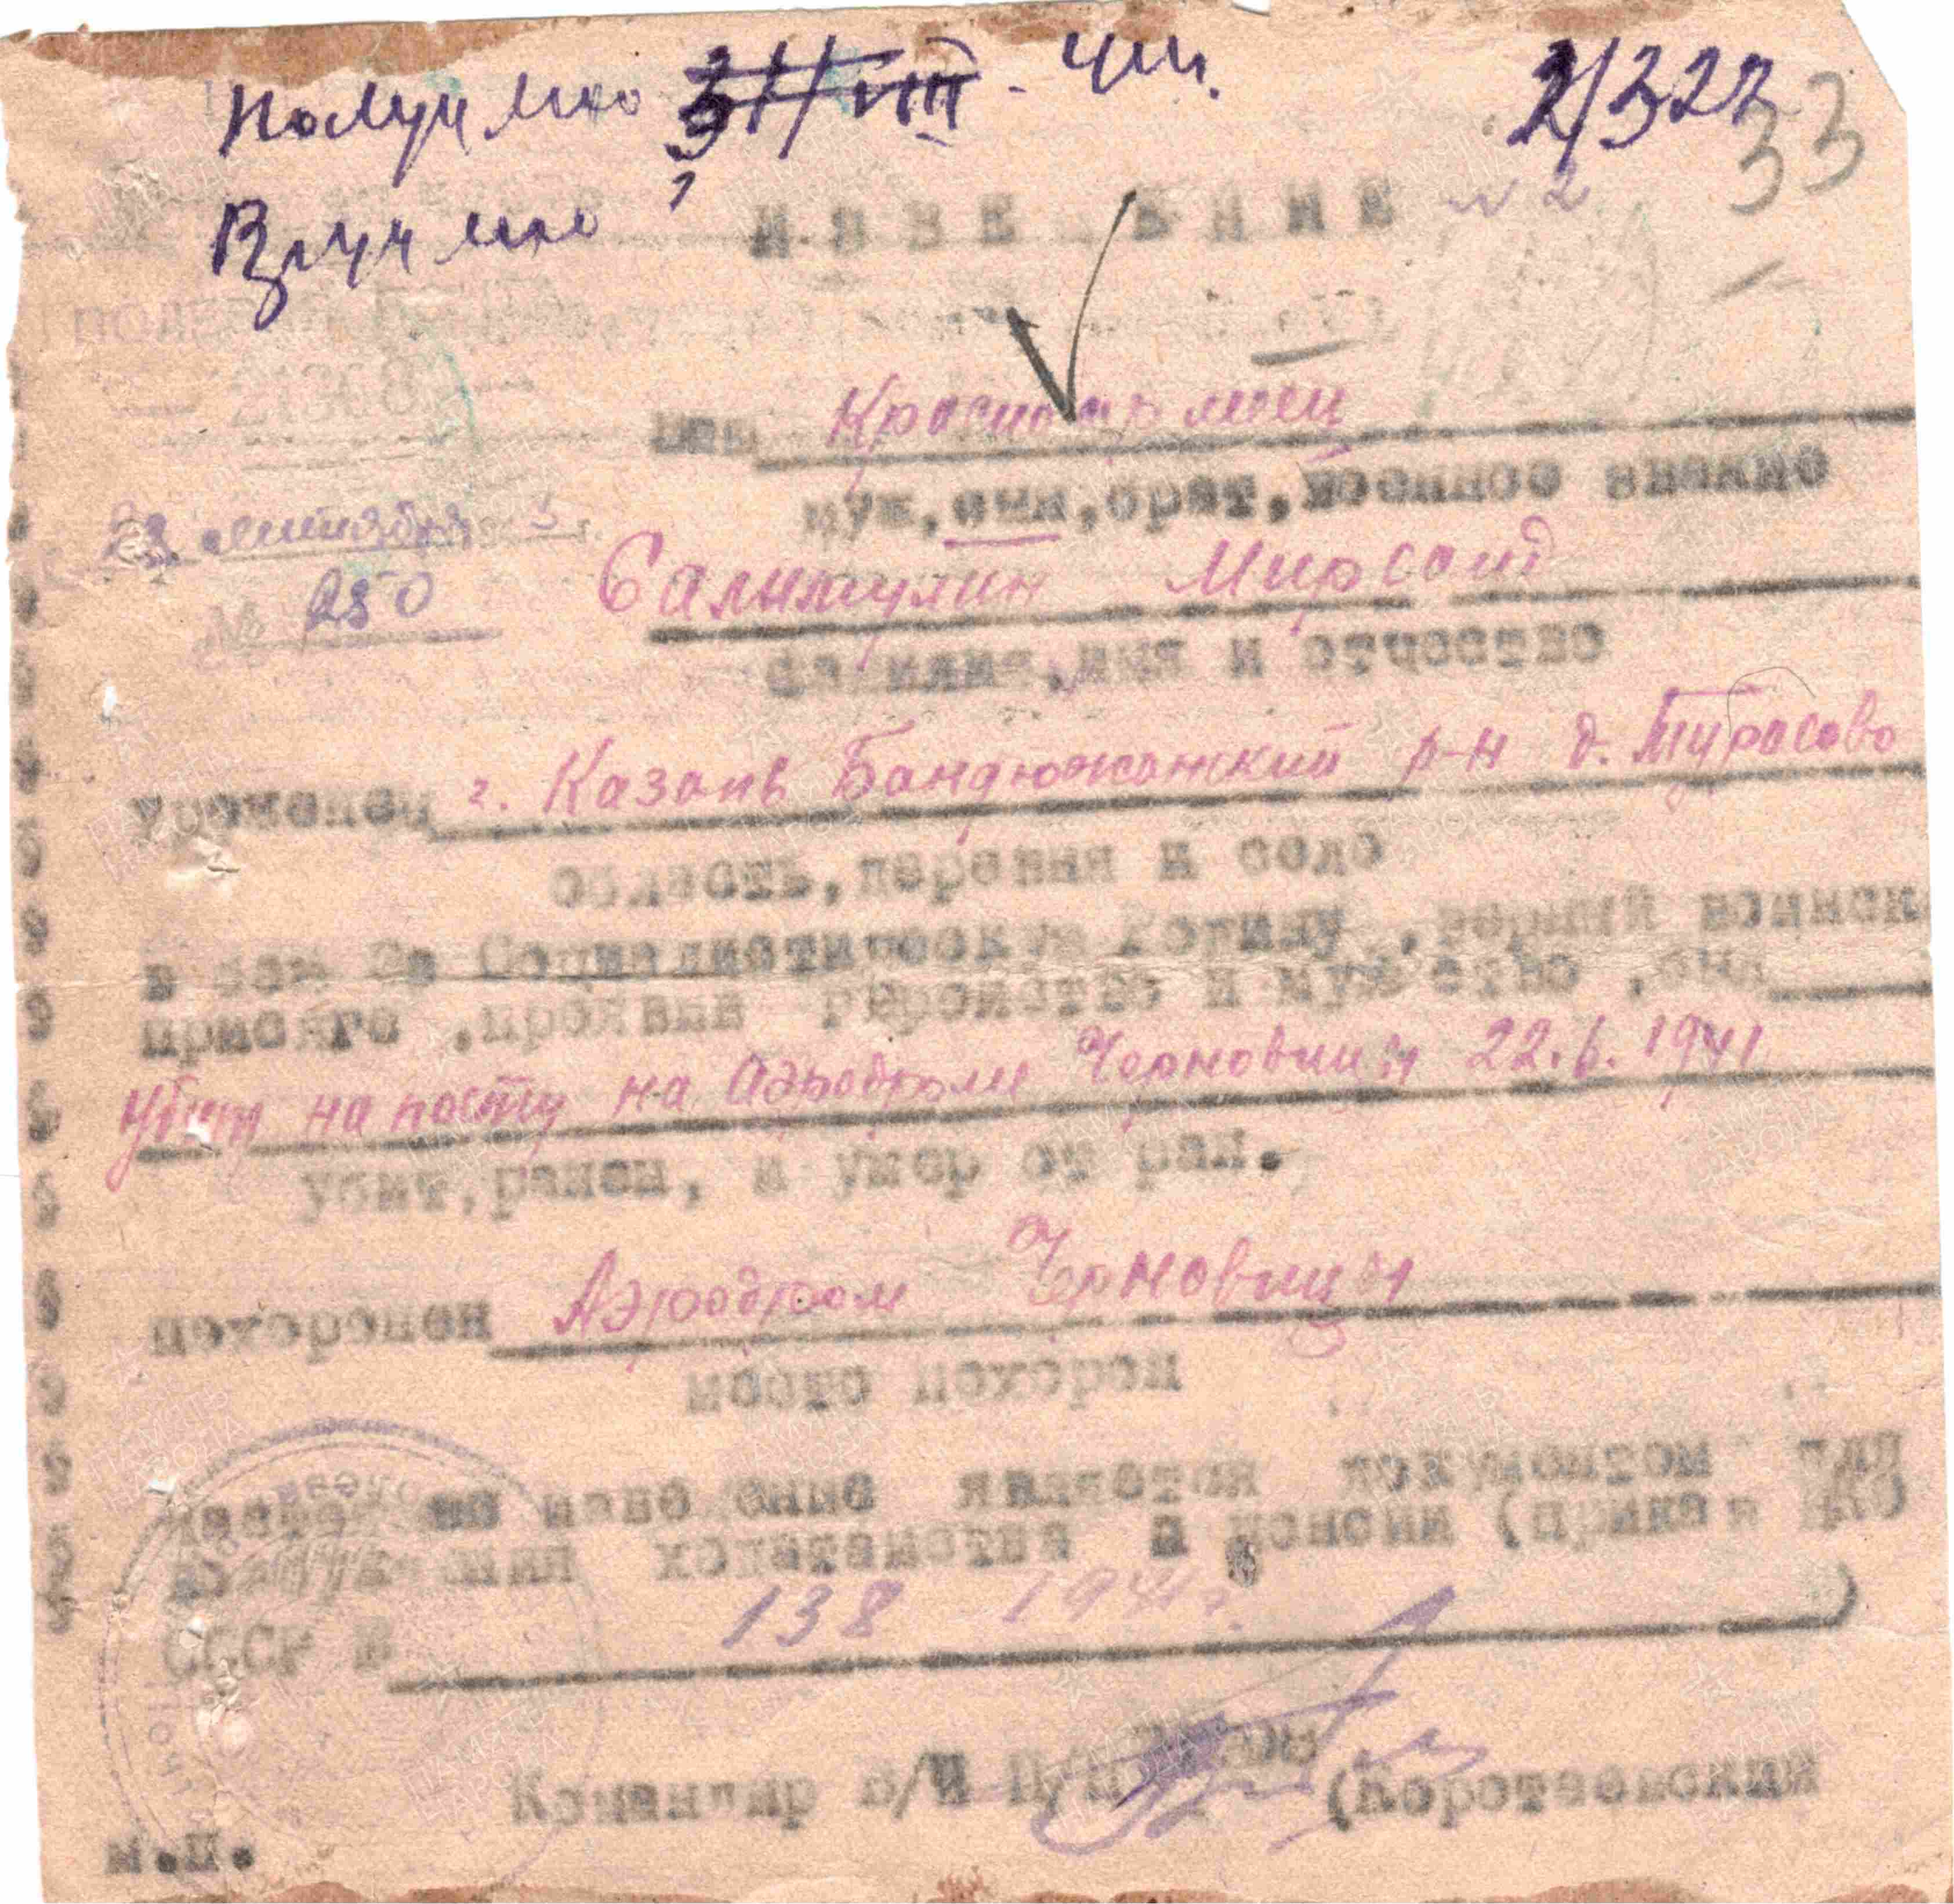 Получено
2/322
33
Вручено
ИЗВЕЩЕНИЕ № 2
21808
Ваш Красноармеец
муж, сын, брат, военное звание
23 сентября
№ 250
Салимулин Мирсаид
фамилия, имя и отчество
уроженец г. Казань Бандюжанский р-н д.
область, деревня и село
в бою за Социалистическую Родину, верный воинск
присяге, проявив геройство и мужество, был
убит на посту на Аэродроме Черновицы 22.6.1941
убит, ранен, и умер от ран.
похоронен Аэродром Черновицы
место похорон
настоящее извещение является документом для
возбуждения ходатайства о пенсии (приказ НКО
СССР № 138 1941 г. )
Командир в/ч П/П (Коротаевский
м.п.